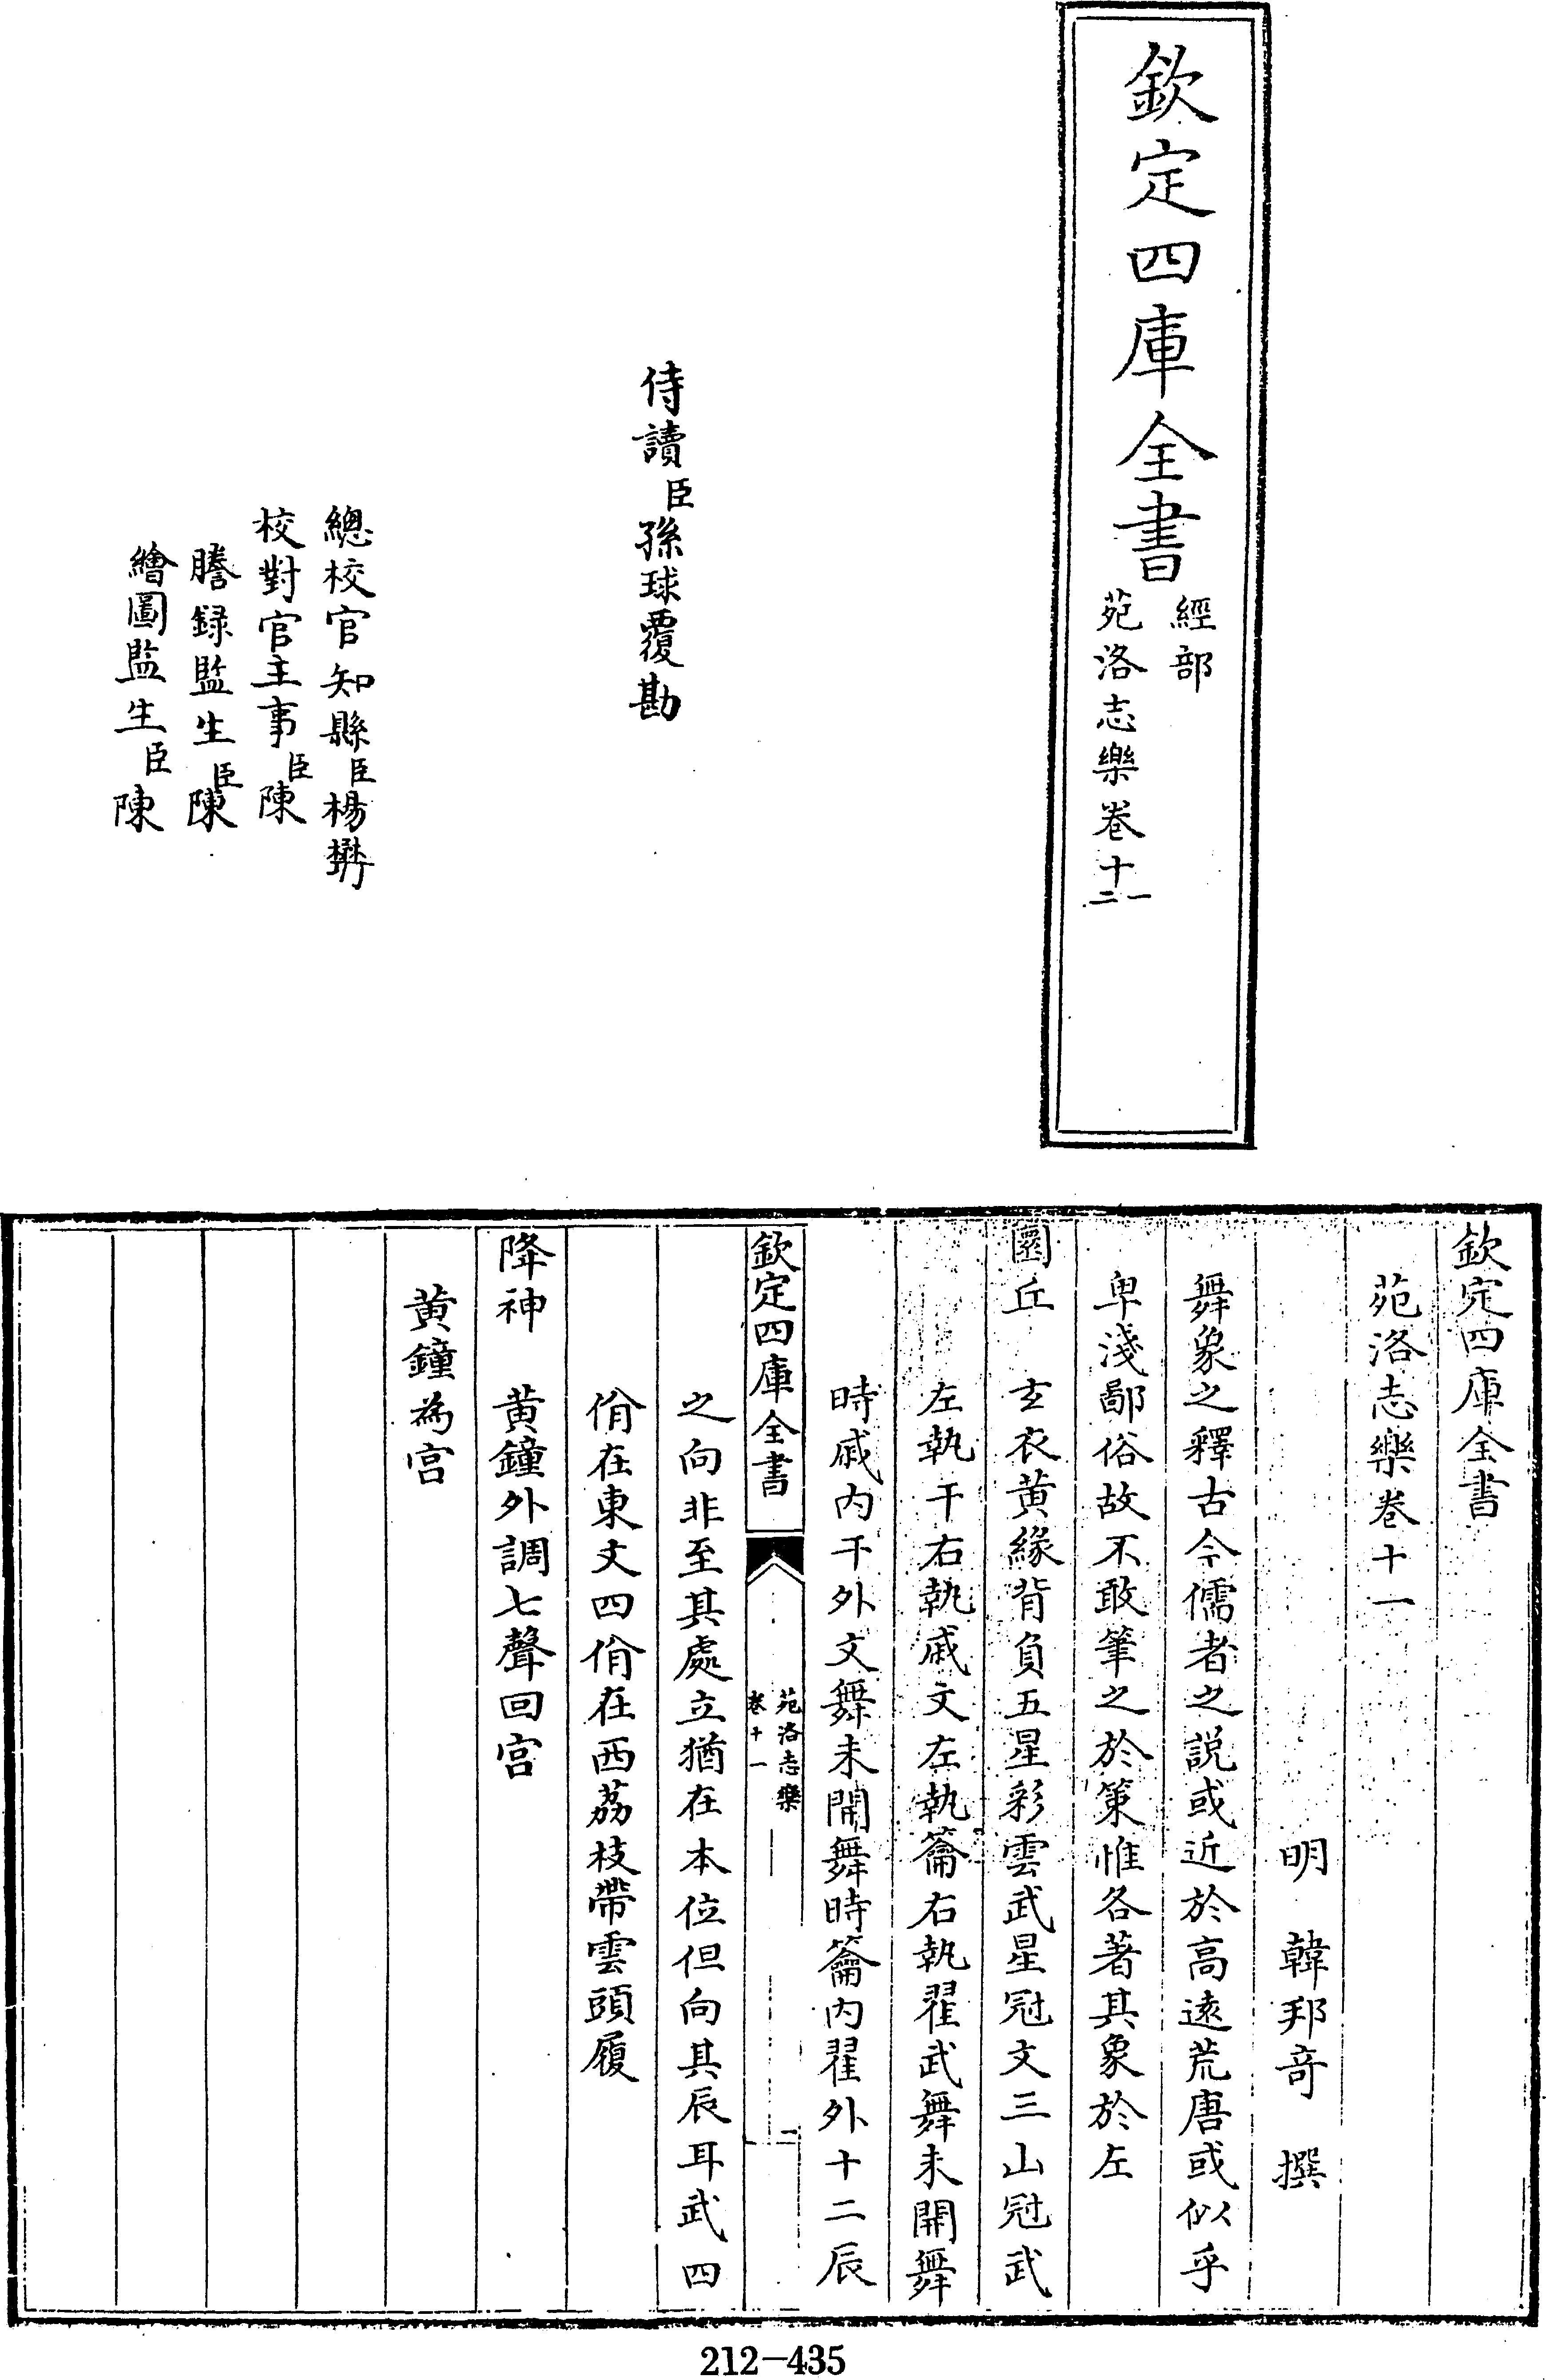 欽定四庫全書
經部
苑洛志樂卷十一
二
侍讀臣孫球覆勘
總校官知縣臣楊懋珩
校對官主事臣陳
謄録監生臣陳
繪圖監生臣陳
欽定四庫全書
苑洛志樂卷十一
明 韓邦奇 撰
舞象之釋古今儒者之説或近於高逺荒唐或似乎
卑淺鄙俗故不敢筆之於策惟各著其象於左
圜丘 玄衣黄緣背負五星彩雲武星冠文三山冠武
左執干右執戚文左執籥右執翟武舞未開舞
時戚内干外文舞未開舞時籥内翟外十二辰
欽定四庫全書
苑洛志樂
卷十一
一
之向非至其處立猶在本位但向其辰耳武四
佾在東文四佾在西荔枝帶雲頭履
降神 黄鐘外調七聲回宫
黄鐘為宫
212-435